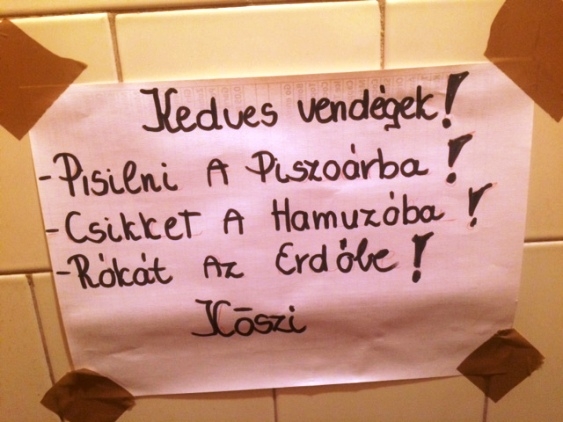 Kedves vendégek!
-Pisilni A Piszoárba!
-Csikket A Hamuzóba!
-Rókát Az Erdőbe!
Kōszi